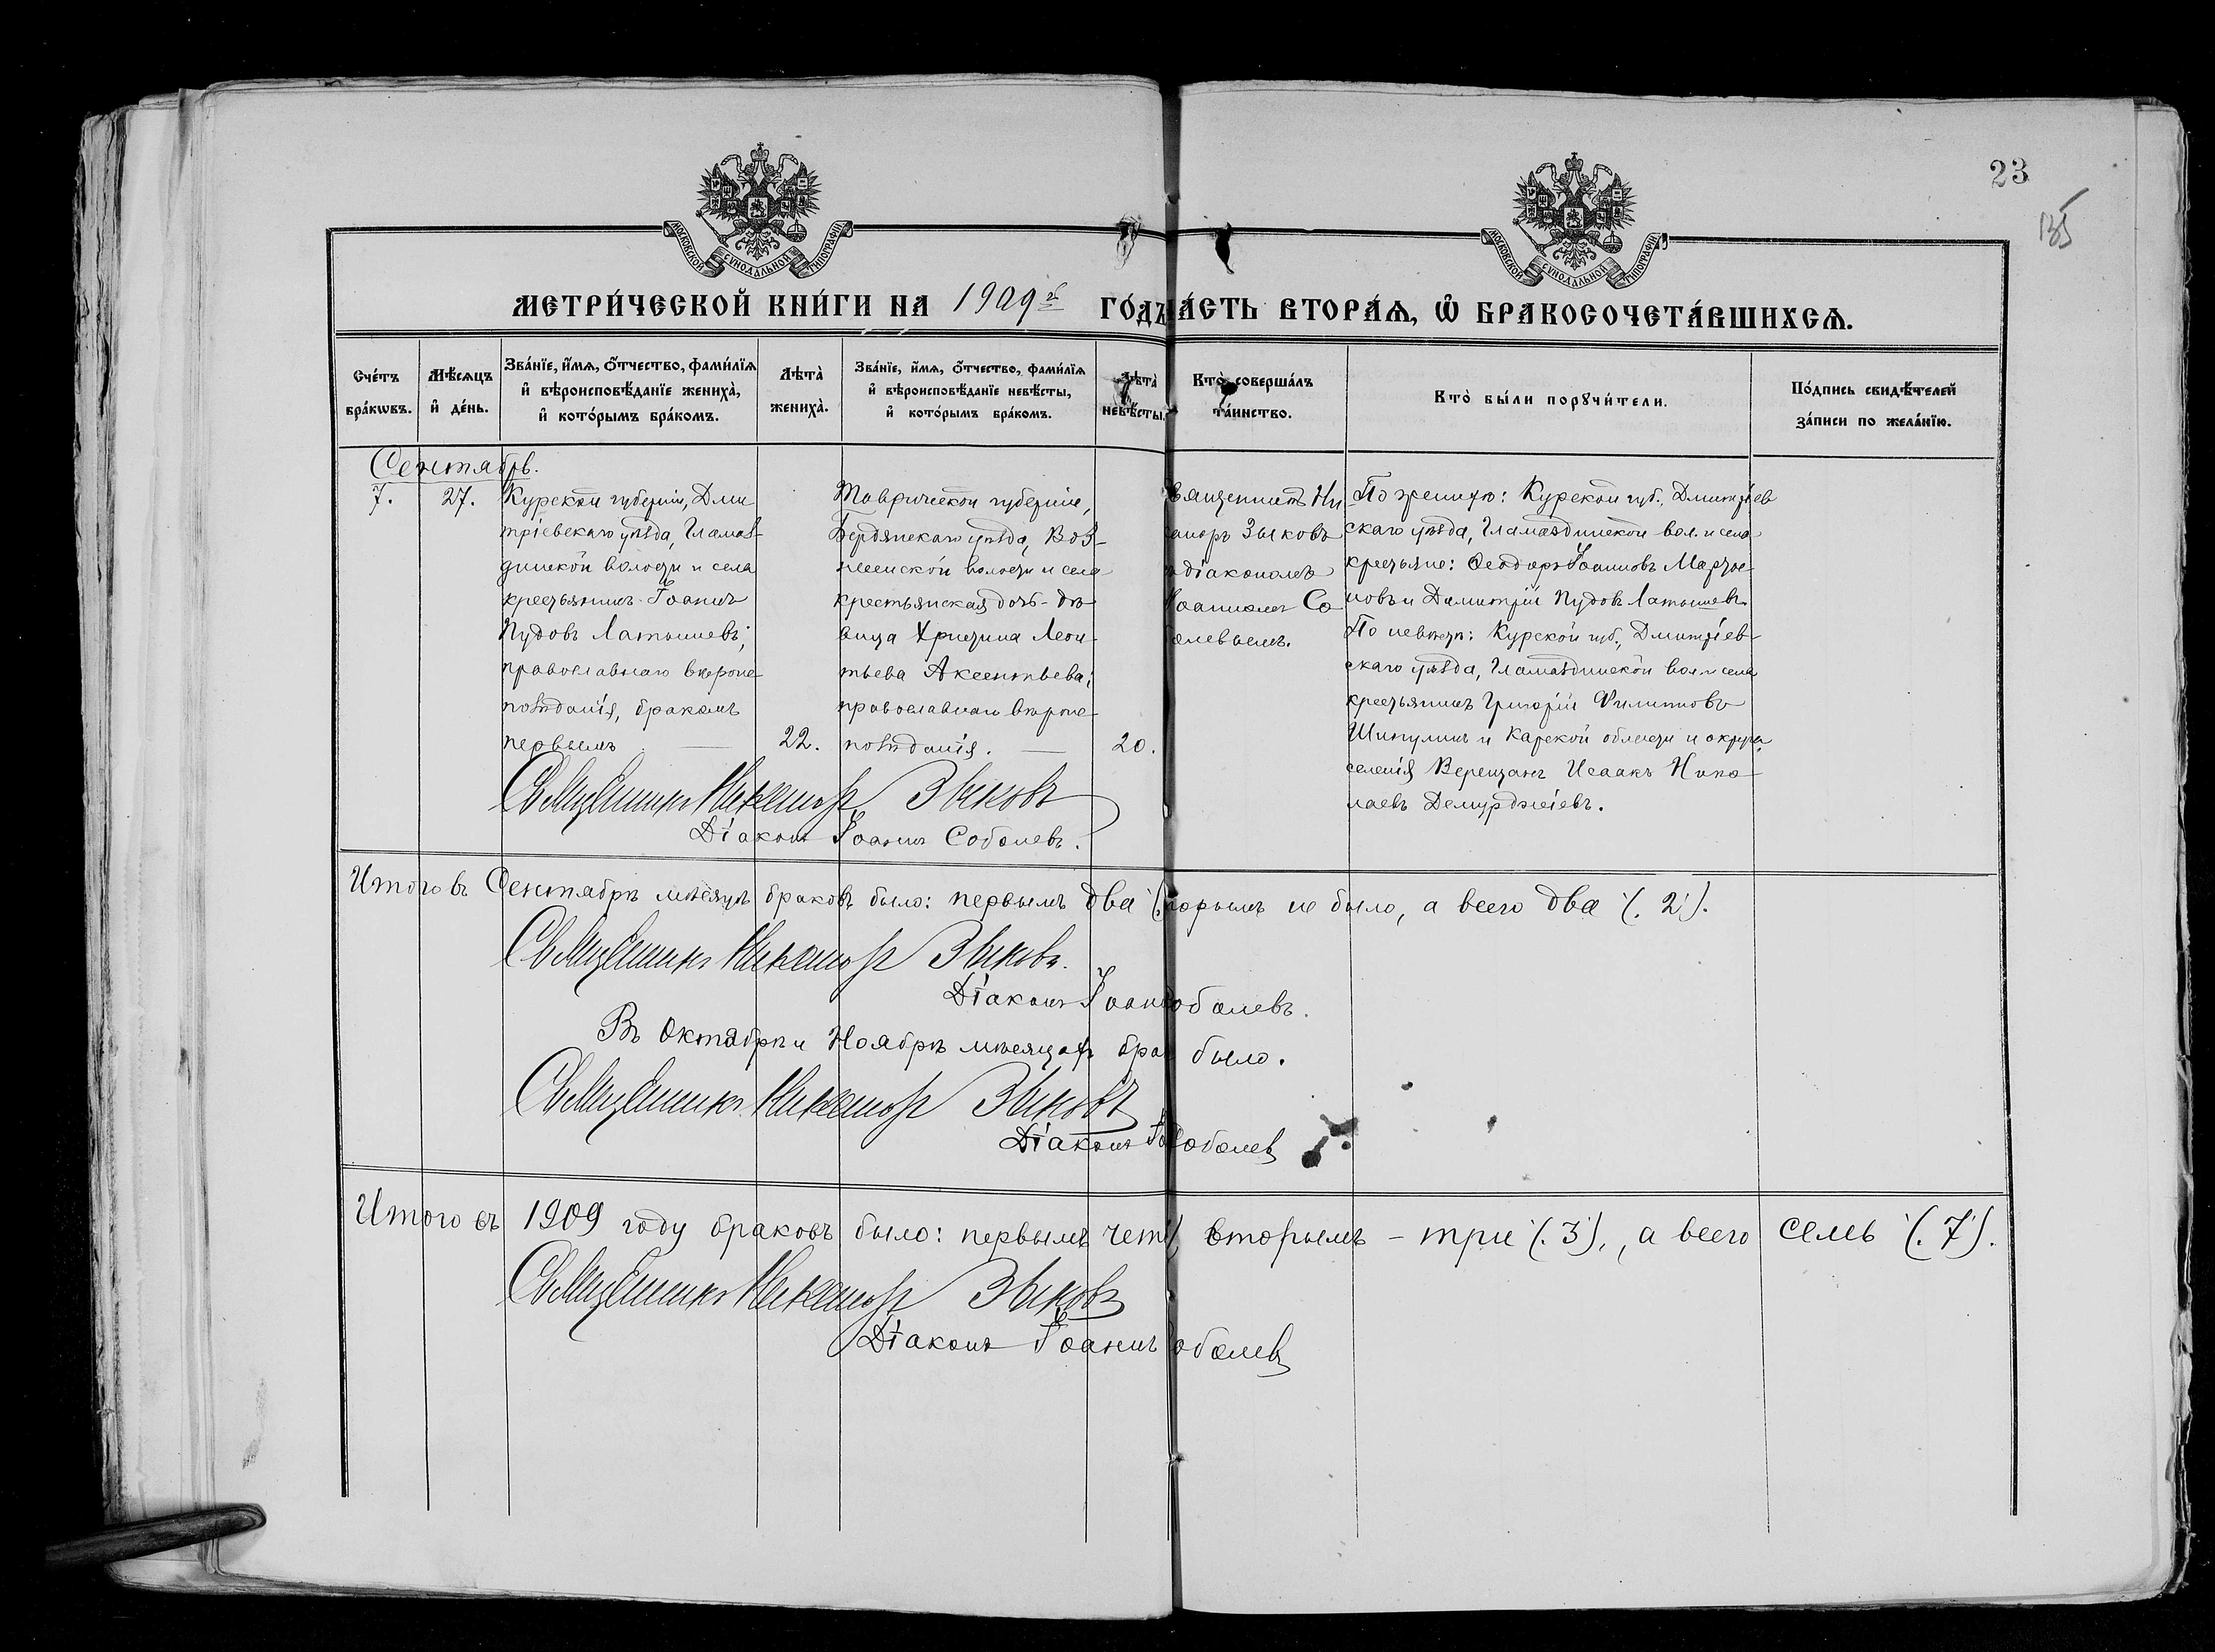 23
135
МОСКОВСКОЙ СѴНОДАЛЬНОЙ ТИПОГРАФІИ
МОСКОВСКОЙ СѴНОДАЛЬНОЙ ТИПОГРАФІИ
МЕТРИ́ЧЕСКОЙ КНИ́ГИ НА 1909й ГО́ДЪ
ЧА́СТЬ ВТОРА́Ѧ, Ѡ҆ БРАКОСОЧЕТА́ВШИХСѦ.
Сче́тъ бра́кѡвъ.
Мѣ́сѧцъ и҆ де́нь.
Зва́нїе, и҆́мѧ, ѻ҆́тчество, фами́лїѧ
и҆ вѣроисповѣ́данїе жениха̀,
и҆ кото́рымъ бра́комъ.
Лѣта̀ жениха̀.
Зва́нїе, и҆́мѧ, ѻ҆́тчество, фами́лїѧ
и҆ вѣроисповѣ́данїе невѣ́сты,
и҆ кото́рымъ бра́комъ.
Лѣта̀ невѣ́сты.
Кто̀ соверша́лъ та́инство.
Кто̀ бы́ли порꙋчи́тели.
По́дпись свидѣ́телей
за́писи по жела́нїю.
Сентябрь.
7.
27.
Курской губерніи, Дми
тріевскаго уѣзда, Гламаз-
динской волости и села
крестьянинъ Іоаннъ
Пудовъ Латышевъ;
православнаго вѣроис
повѣданія, бракомъ
первымъ —
22.
Таврической губерніи,
Бердянскаго уѣзда, Воз-
несенской волости и села
крестьянская дочь-дѣ
вица Христина Леон-
тьева Аксентьева;
православнаго вѣроис-
повѣданія. —
20.
вященникъ Ни
аноръ Зыковъ
діакономъ
Іоанномъ Со
олевымъ.
По женихѣ: Курской губ., Дмитріев
скаго уѣзда, Гламаздинской вол. и села
крестьяне: Ѳеодоръ Іоанновъ Мартые
новъ и Димитрій Пудовъ Латышевъ.
По невѣстѣ: Курской губ., Дмитріев-
скаго уѣзда, Гламаздинской вол. и села
крестьянинъ Григорій Филипповъ
Шипулинъ и Карской области и округа,
селенія Верещанъ Исаакъ Нико-
лаевъ Демурджіевъ.
Священникъ Никаноръ Зыковъ
Діаконъ Іоаннъ Соболевъ.
Итого въ Сентябрѣ мѣсяцѣ браковъ было: первымъ два (. торымъ не было, а всего два (. 2.).
Священникъ Никаноръ Зыковъ.
Діаконъ Іоан оболевъ.
Въ Октябрѣ и Ноябрѣ мѣсяцахъ брак было.
Священникъ Никаноръ Зыковъ
Діаконъ Іо оболев
Итого въ 1909 году браковъ было: первымъ четы вторымъ - три (. 3.)., а всего семь (. 7.).
Священникъ Никаноръ Зыковъ
Діаконъ Іоаннъ оболев